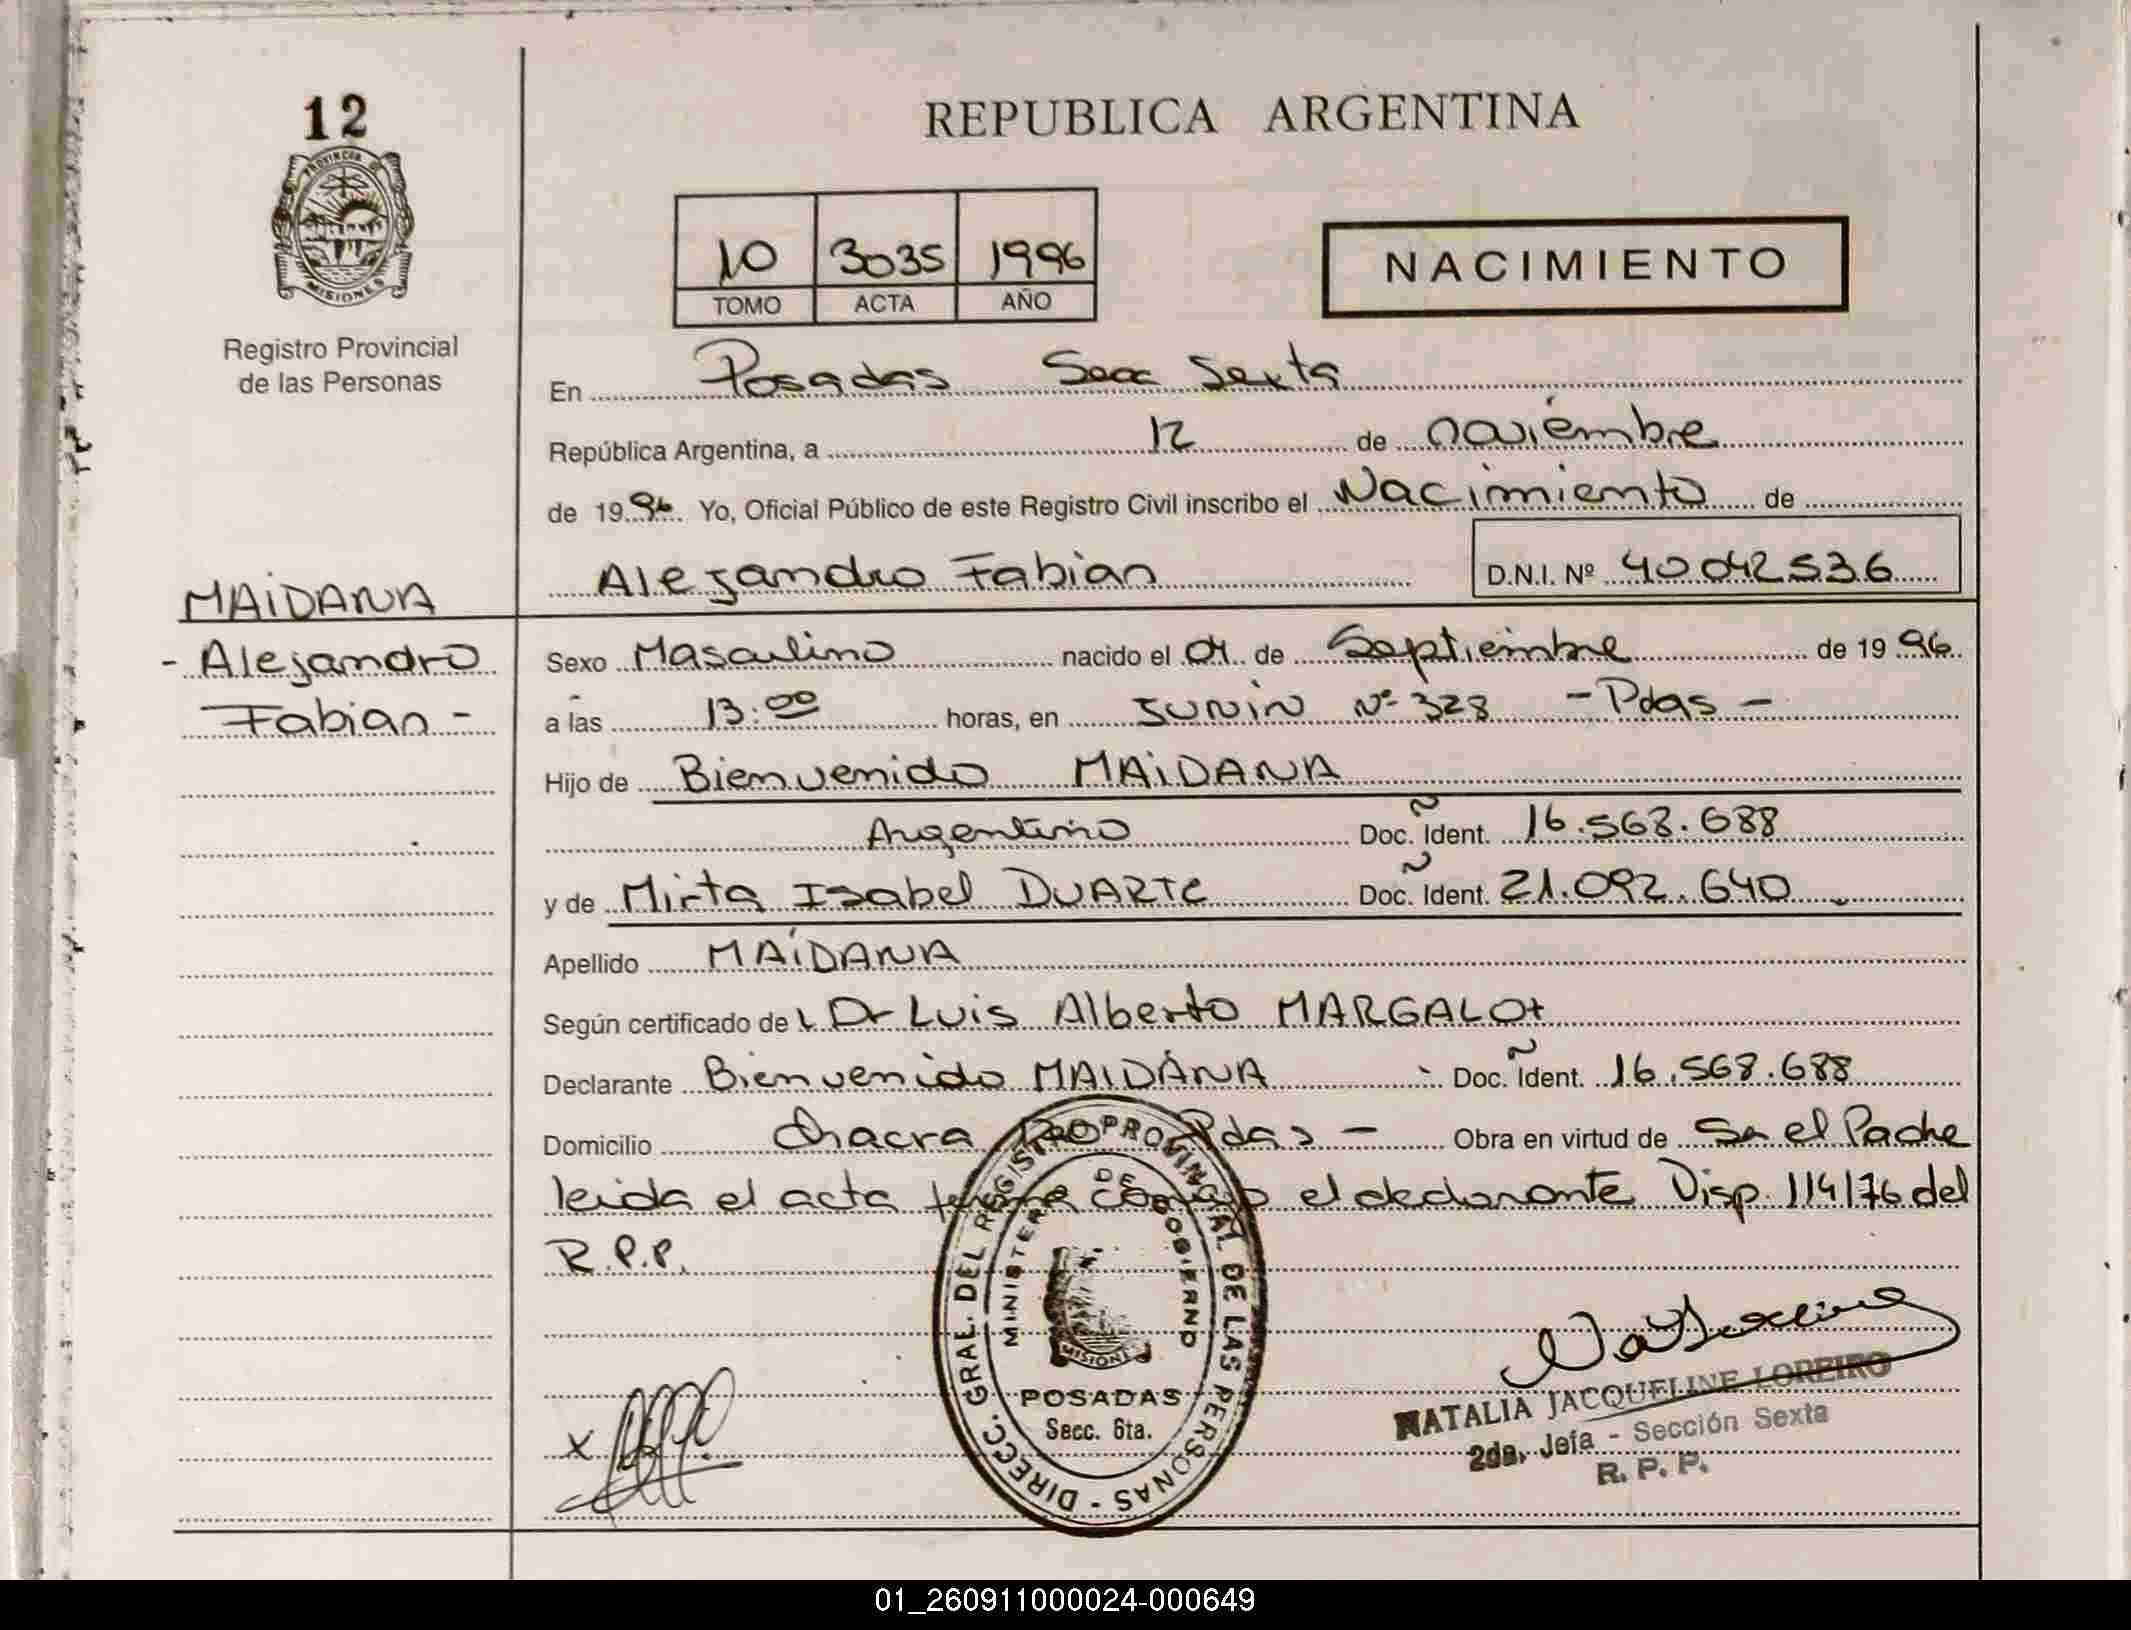 12
PROVINCIA DE
MISIONES
Registro Provincial
de las Personas
REPUBLICA ARGENTINA
10 3035 1996
TOMO ACTA AÑO
NACIMIENTO
En Posadas Secc Sexta
República Argentina, a 12 de noviembre
de 1996 Yo, Oficial Público de este Registro Civil inscribo el Nacimiento de
Alejandro Fabian D.N.I. Nº 40042536
MAIDANA
- Alejandro
Fabian -
Sexo Masculino nacido el 01 de Septiembre de 1996
a las 13:00 horas, en JUNIN Nº 328 - Pdas -
Hijo de Bienvenido MAIDANA
Argentino Doc. Ident. 16.568.688
y de Mirta Isabel DUARTE Doc. Ident. 21.092.640
Apellido MAIDANA
Según certificado de Dr Luis Alberto MARGALOT
Declarante Bienvenido MAIDANA Doc. Ident. 16.568.688
Domicilio Chacra Pdas - Obra en virtud de Ser el Padre
leida el acta firma conmigo el declarante Disp. 114/76 del
R.P.P.
DIRECC. GRAL. DEL REGISTRO PROVINCIAL DE LAS PERSONAS -
MINISTERIO DE GOBIERNO
MISIONES
POSADAS
Secc. 6ta.
X
NATALIA JACQUELINE LOREIRO
2da. Jefa - Sección Sexta
R. P. P.
01_260911000024-000649